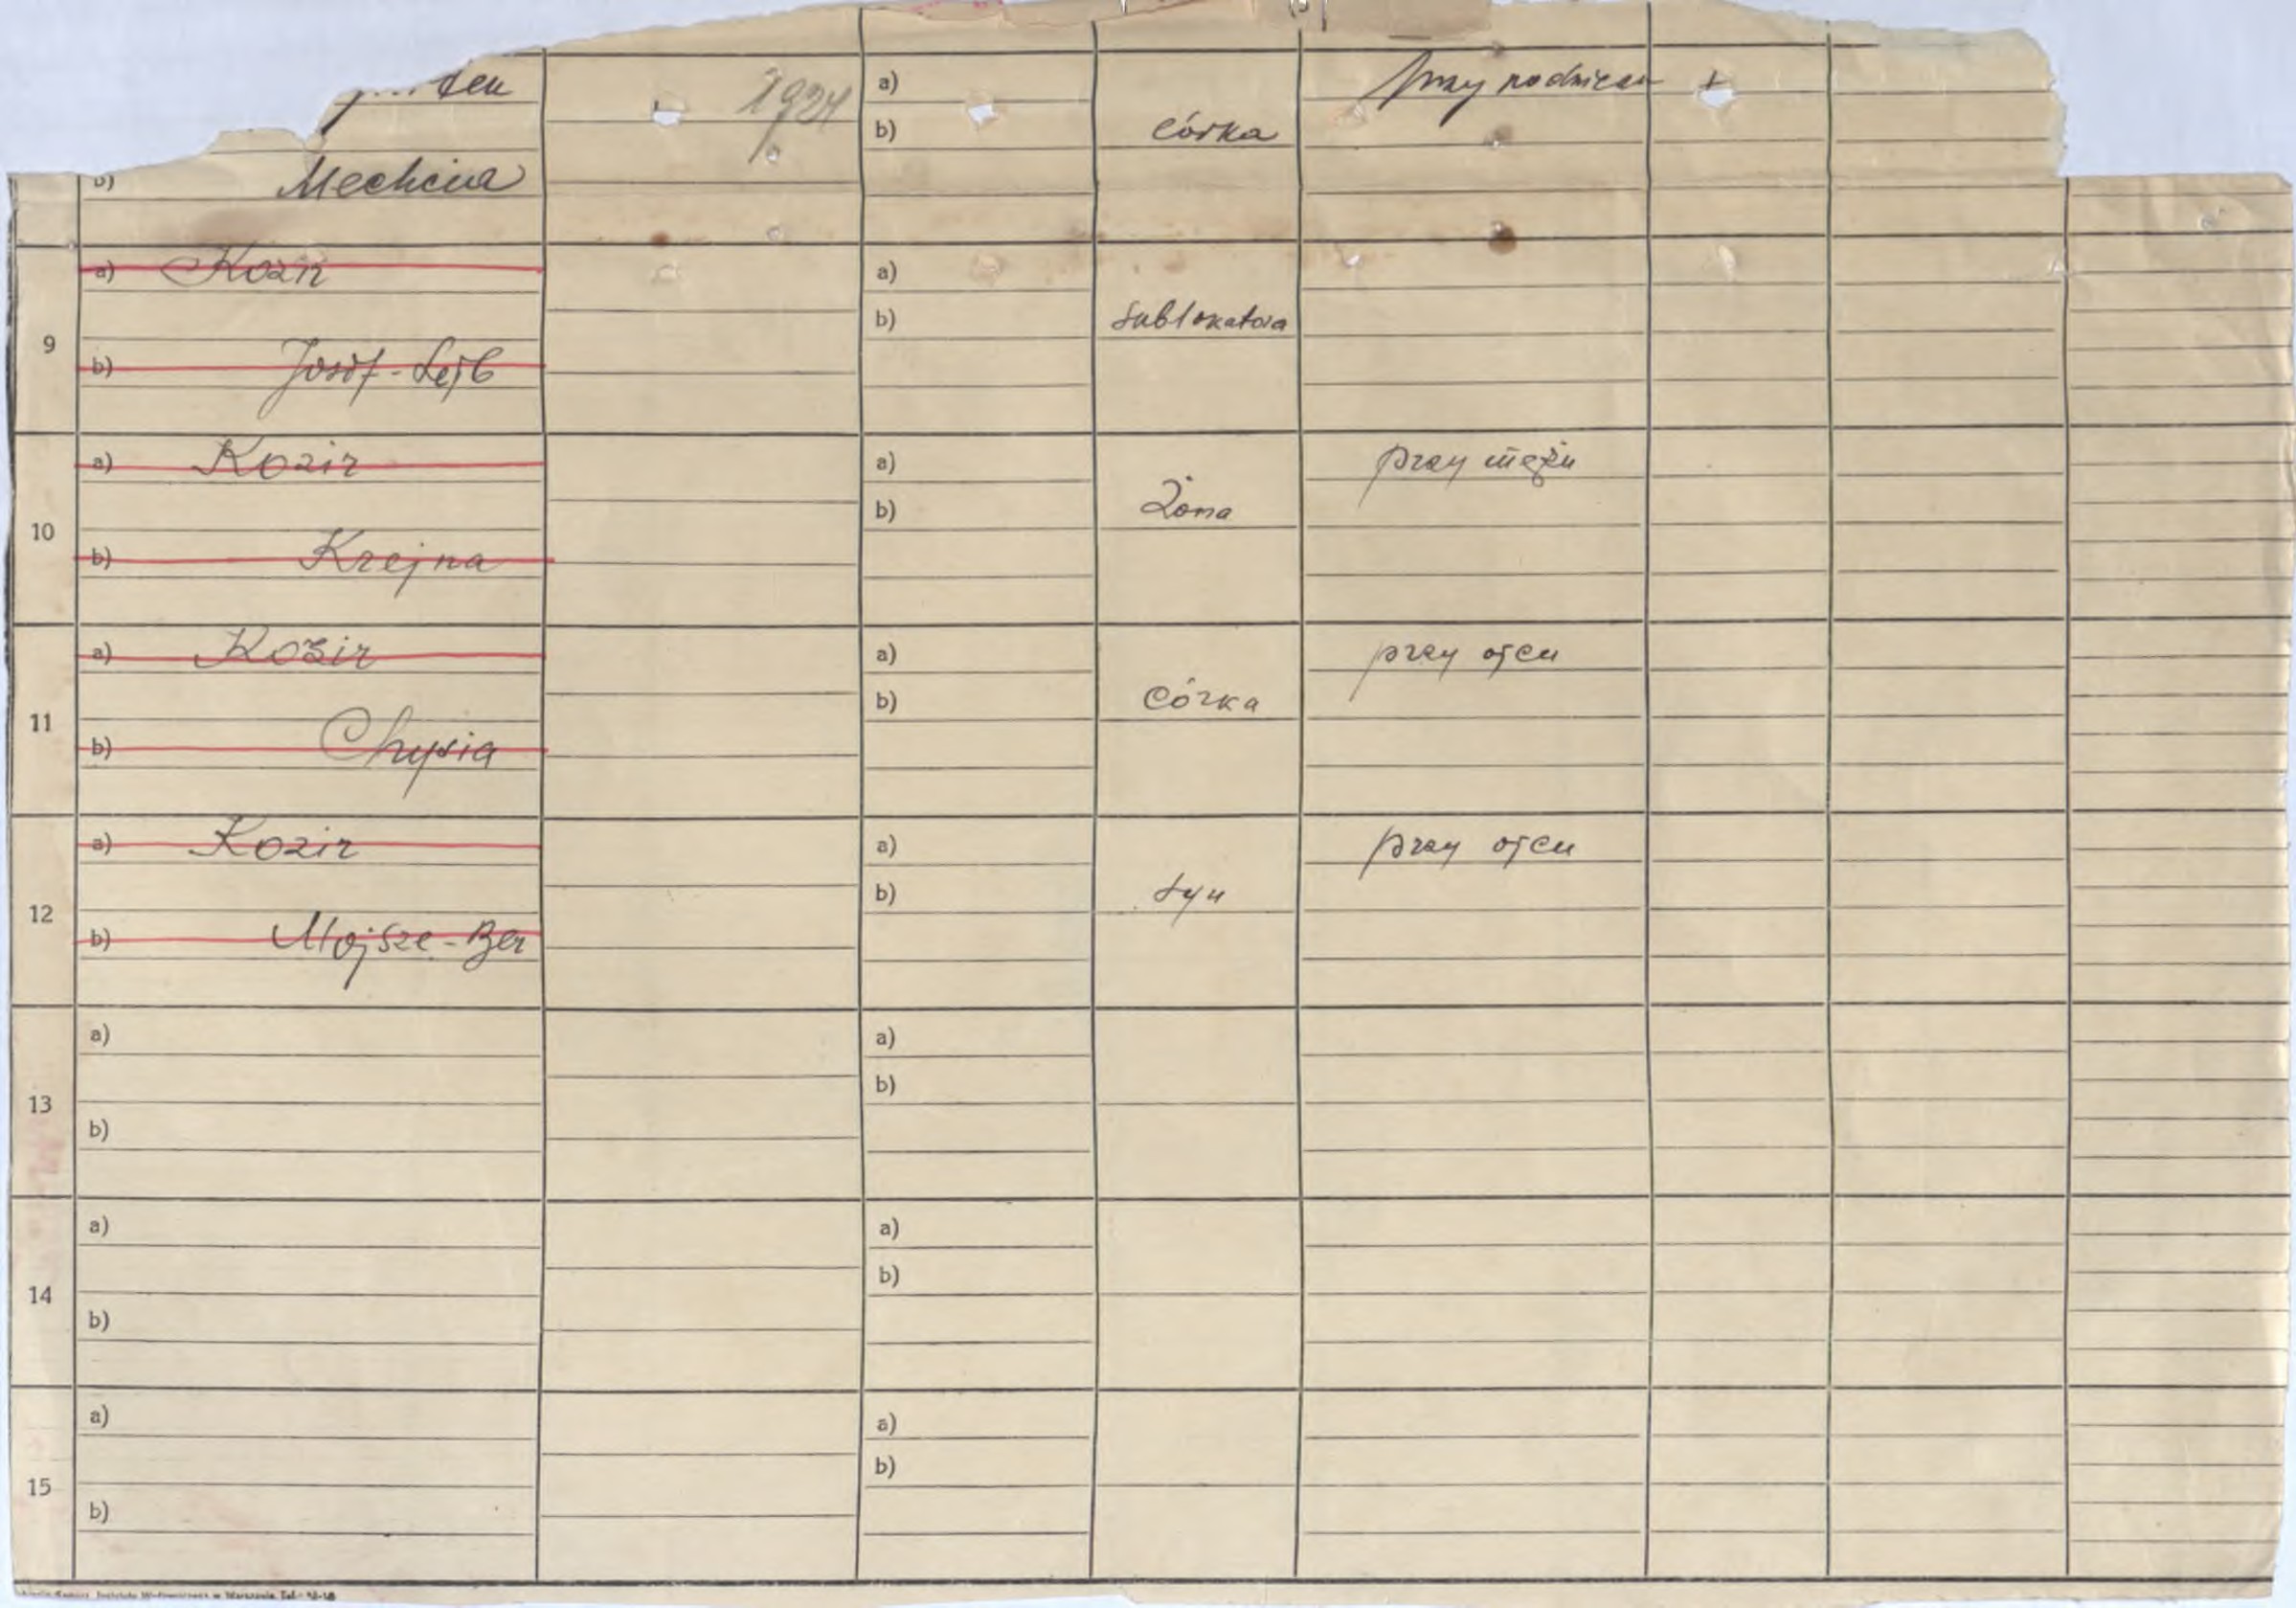 1924 a) przy rodzicach +
b) córka
b) Mechcia
a) Kozir a)
b) sublokatora
9
b) Josif-Lejb
a) Kozir a) przy mężu
b) żona
10
b) Krejna
a) Kozir a) przy ojcu
b) córka
11
b) Chysia
a) Kozir a) przy ojcu
b) syn
12
b) Mojsze-Ber
a) a)
b)
13
b)
a) a)
b)
14
b)
a) a)
b)
15
b)
w Warszawie. Tel.